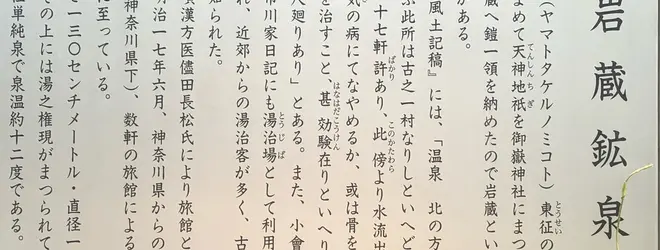 岩蔵鉱泉
(ヤマトタケルノミコト)東征の
なめて天神地祇を御嶽神社にまつ
蔵へ鎧一領を納めたので岩蔵とい
がある。
風土記稿』には、「温泉 北の方
ぶ此所は古之一村なりしといへど
十七軒許あり、此傍より水流出
気の病にてなやめるか、或は骨を
を治すこと、甚効験在りといへり
人廻りあり」とある。また、小會
市川家日記にも湯治場として利用
れ、近郊からの湯治客が多く、古
知られた。
漢方医儘田長松氏により旅館と
明治一七年六月、神奈川県からの
神奈川県下)、数軒の旅館による
に至っている。
で一三〇センチメートル・直径一
その上には湯之権現がまつられて
性単純泉で泉温約十二度である。